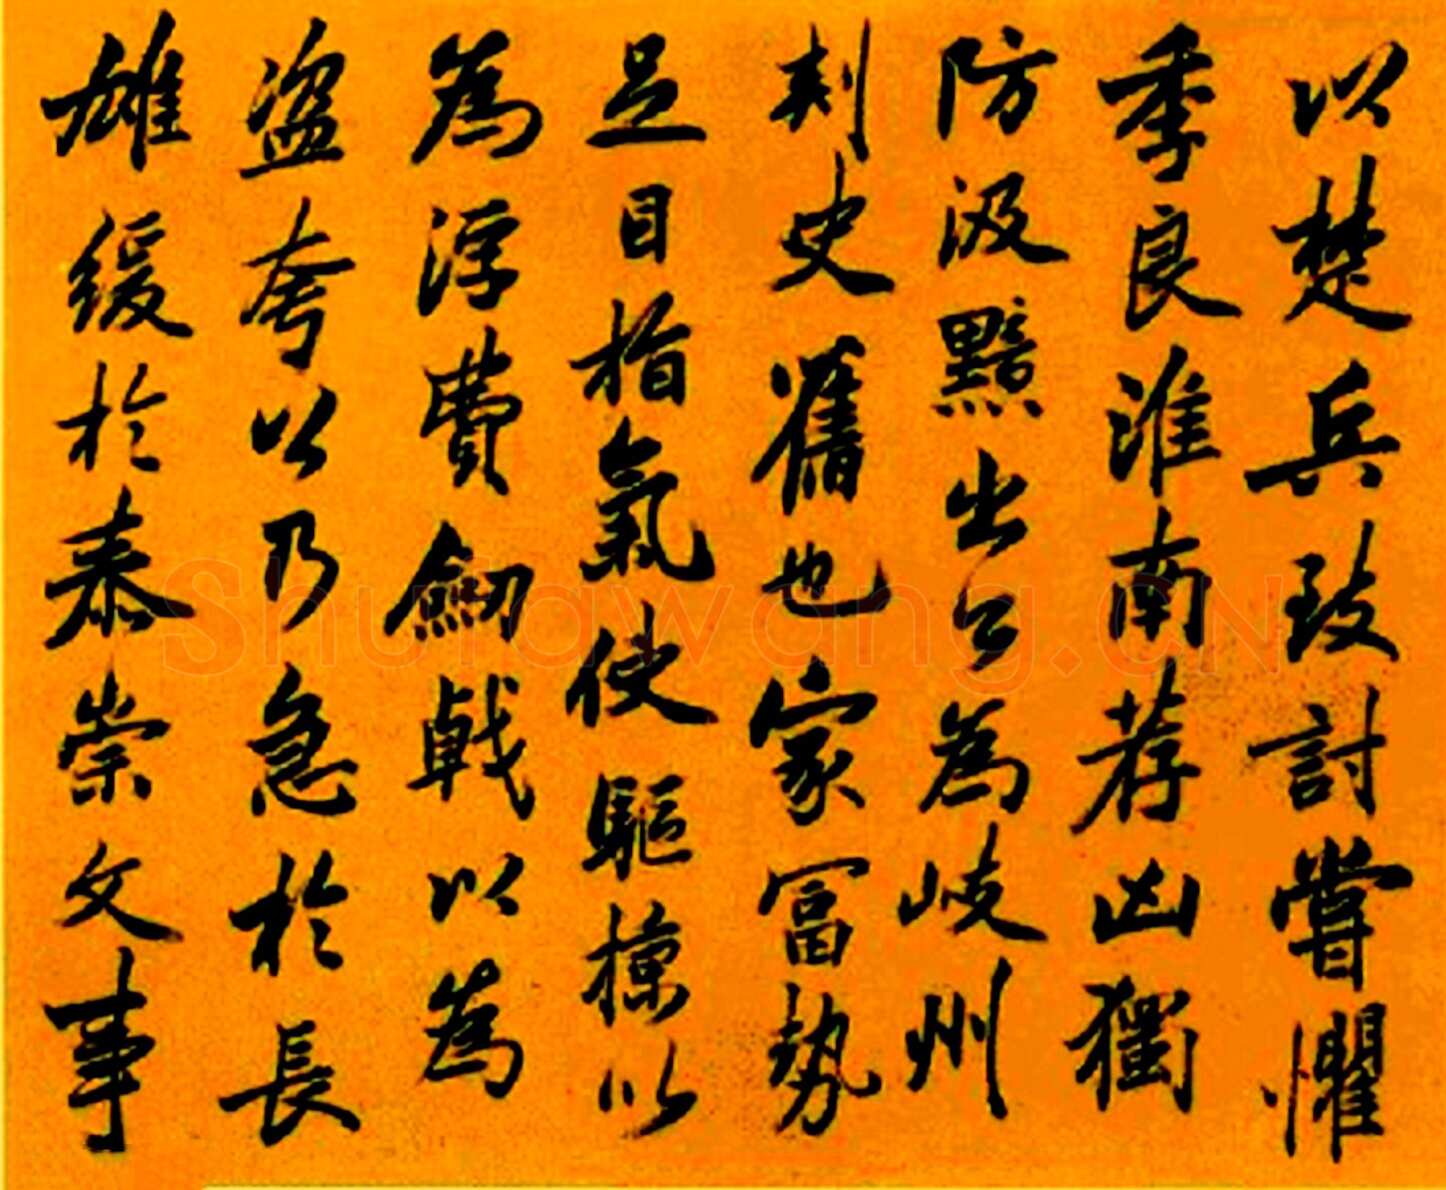 以楚兵致討嘗懼
季良淮南荐凶獨
防汲黯出公為岐州
刺史舊也家富勢
足目指氣使驅掠以
為浮費劒戟以為
盜夸以乃急於長
雄緩於泰崇文事
Shufawang.CN